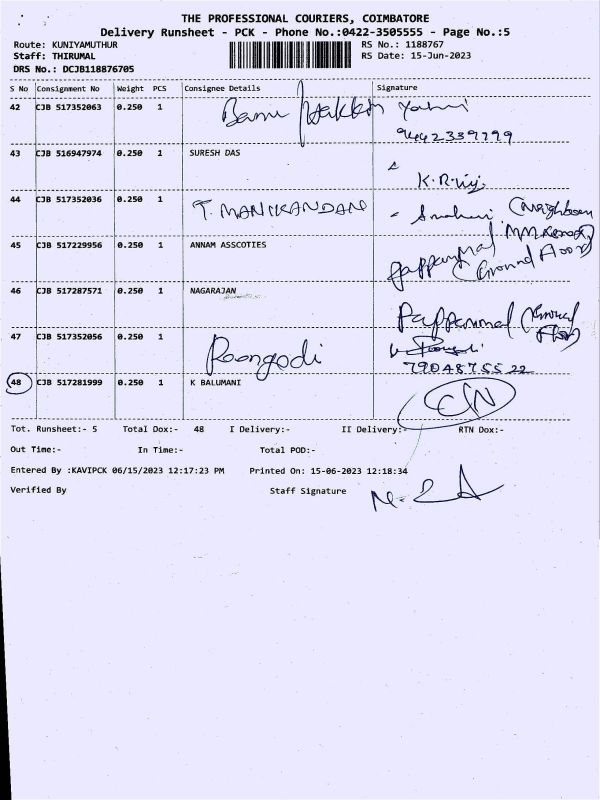 THE PROFESSIONAL COURIERS, COIMBATORE
Delivery Runsheet - PCK - Phone No.:0422-3505555 - Page No.:5
Route: KUNIYAMUTHUR RS No.: 1188767
Staff: THIRUMAL RS Date: 15-Jun-2023
DRS No.: DCJB118876705
S No Consignment No Weight PCS Consignee Details Signature
42 CJB 517352063 0.250 1
9442339799
43 CJB 516947974 0.250 1 SURESH DAS
K.R.
44 CJB 517352036 0.250 1 T. MANIKANDAN
45 CJB 517229956 0.250 1 ANNAM ASSCOTIES
Pappammal (Ground Floor)
46 CJB 517287571 0.250 1 NAGARAJAN
Pappammal (Ground Floor)
47 CJB 517352056 0.250 1 Poongodi
7904875522
48 CJB 517281999 0.250 1 K BALUMANI
Tot. Runsheet:- 5 Total Dox:- 48 I Delivery:- II Delivery:- RTN Dox:-
Out Time:- In Time:- Total POD:-
Entered By :KAVIPCK 06/15/2023 12:17:23 PM Printed On: 15-06-2023 12:18:34
Verified By Staff Signature